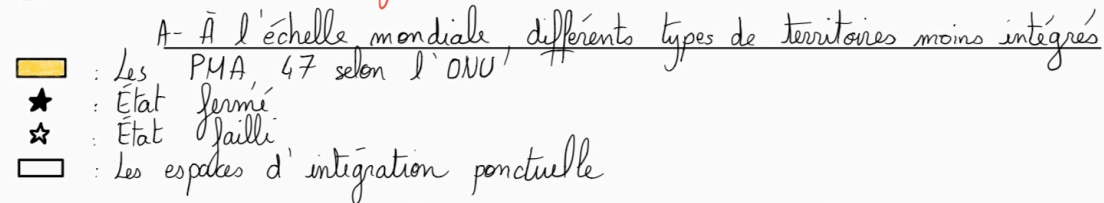 A- À l'échelle mondiale, différents types de territoires moins intégrés
: Les PMA, 47 selon l'ONU
: État fermé
: État failli
: Les espaces d'intégration ponctuelle